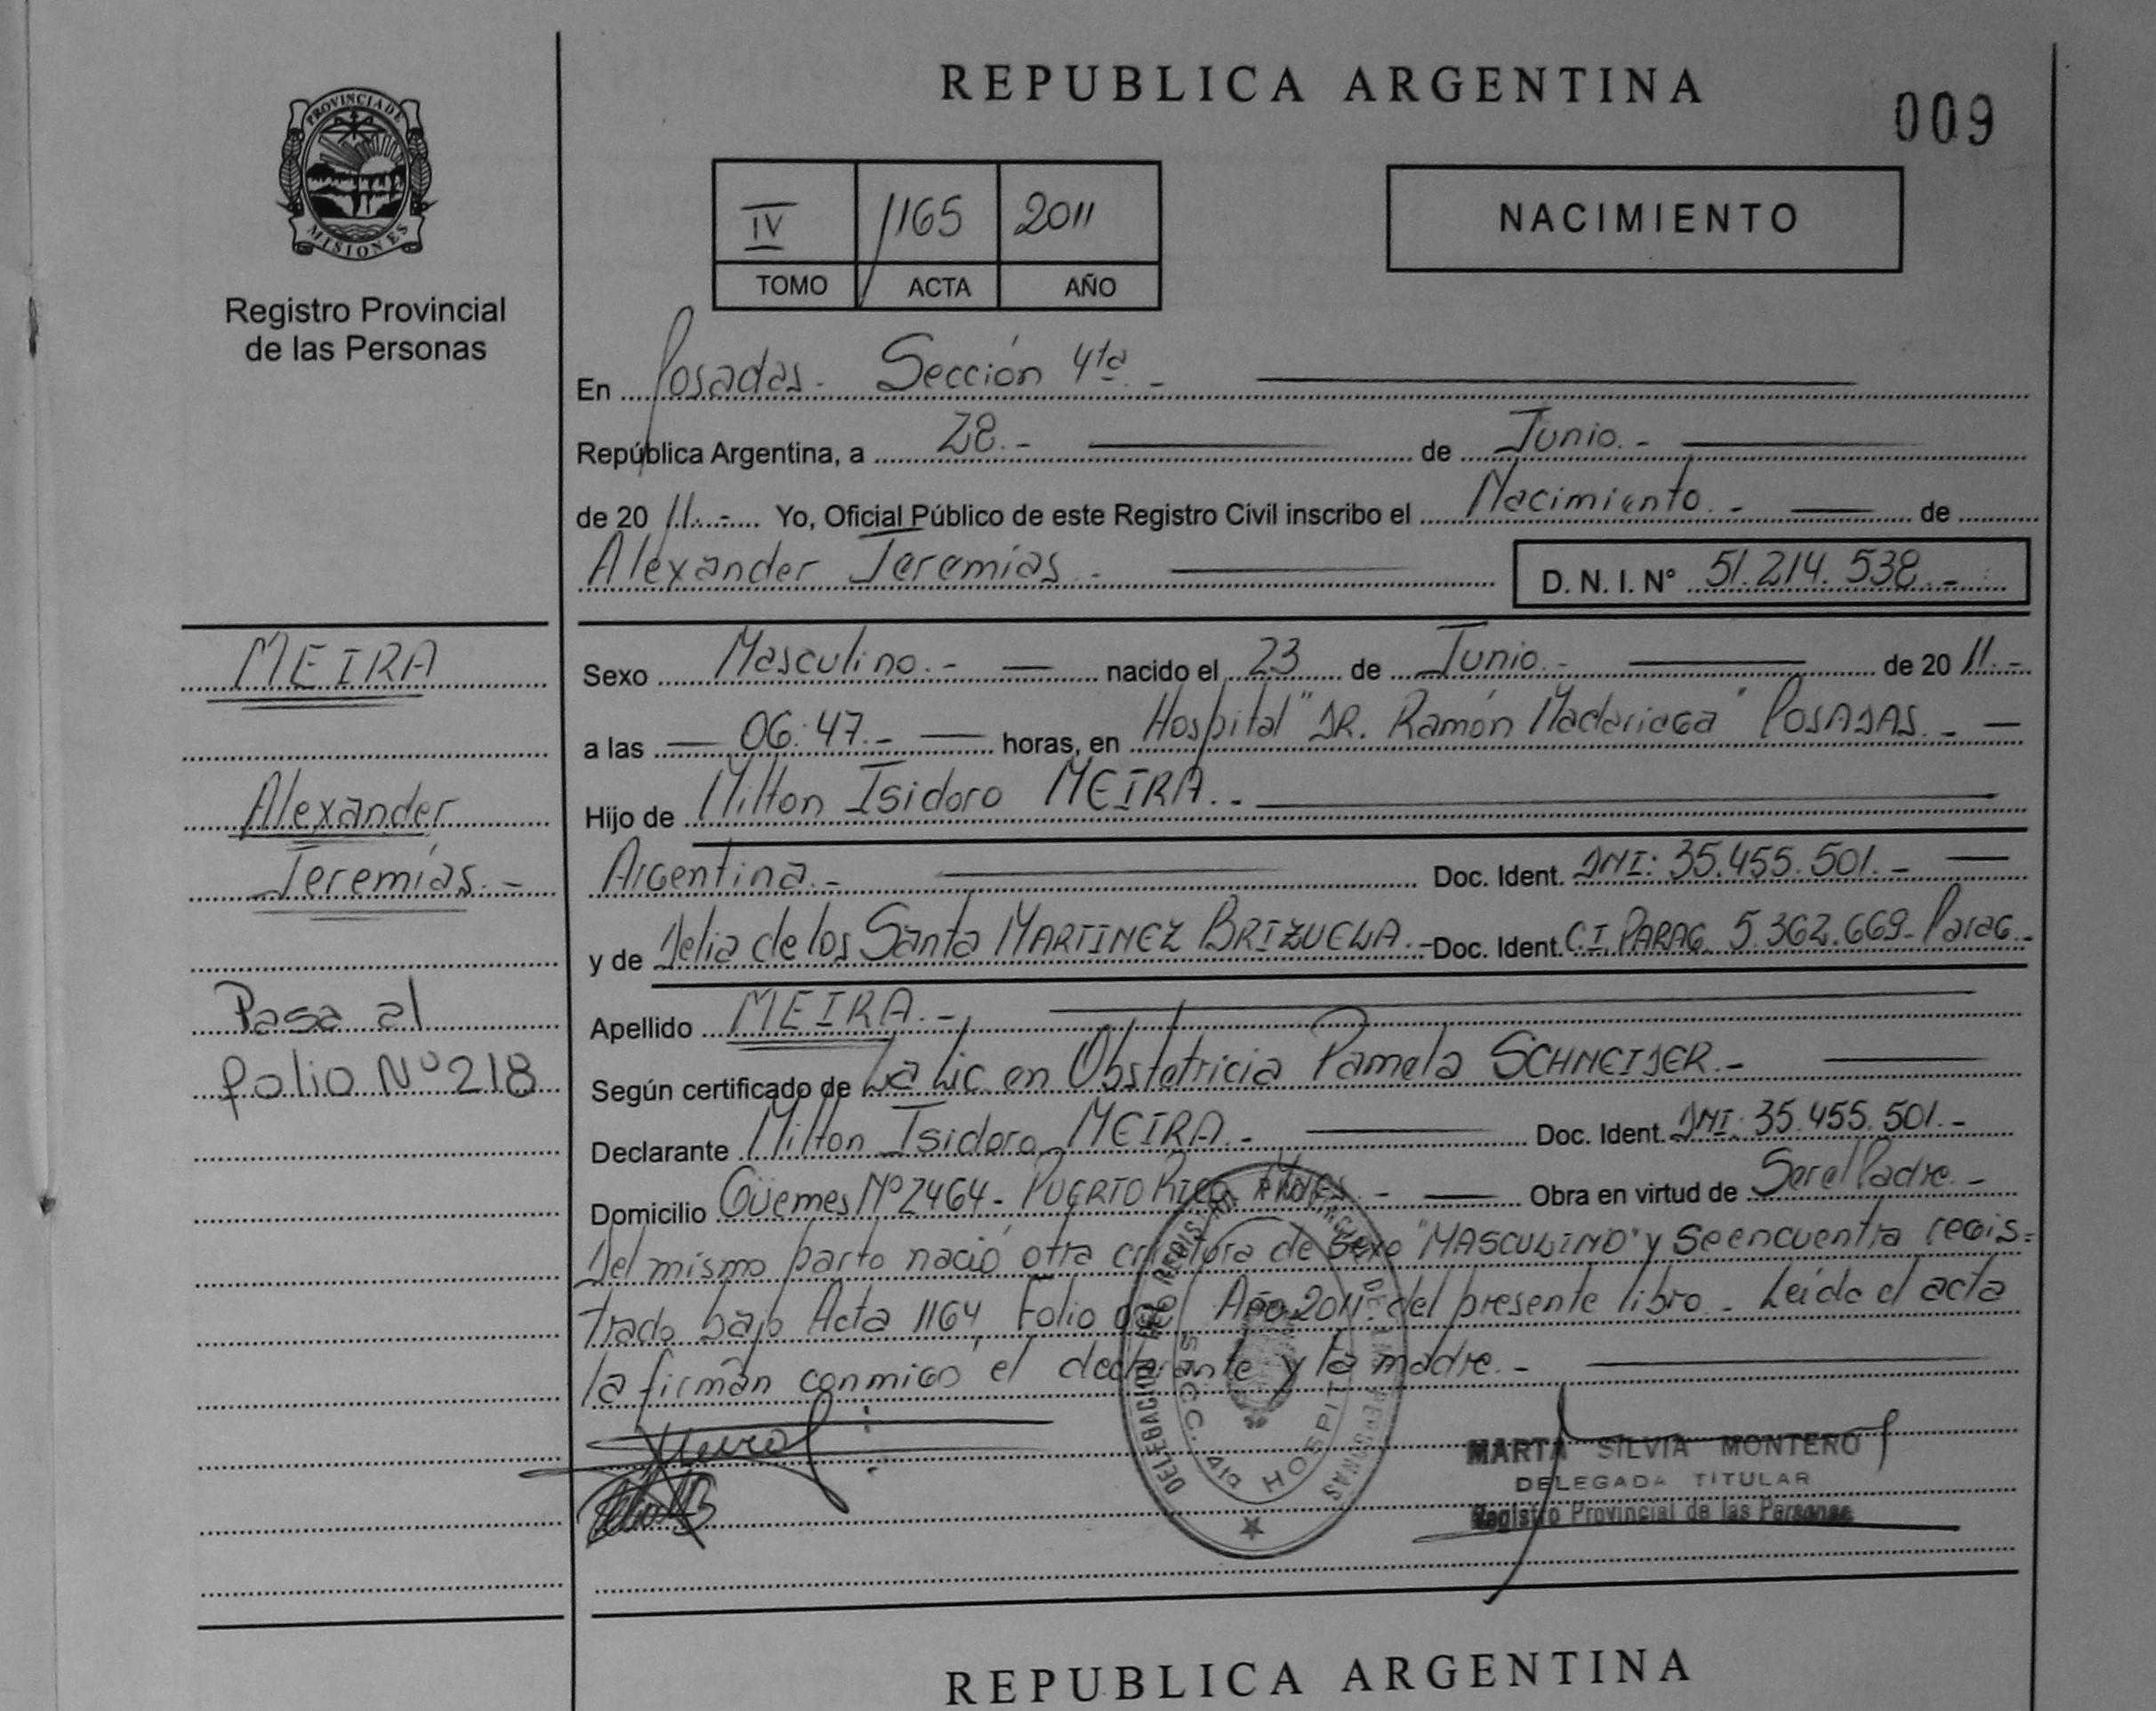 REPUBLICA ARGENTINA
009
PROVINCIA DE
MISIONES
Registro Provincial
de las Personas
IV 1165 2011
TOMO ACTA AÑO
NACIMIENTO
En Posadas.- Sección 4ta.-
República Argentina, a 28.- de Junio.-
de 20 11.- Yo, Oficial Público de este Registro Civil inscribo el Nacimiento.- de
Alexander Jeremías.- D. N. I. N° 51.214.538.-
MEIRA
Alexander
Jeremías.-
Pasa al
folio Nº 218
Sexo Masculino.- nacido el 23 de Junio.- de 20 11.-
a las 06:47.- horas, en Hospital "DR. Ramón Madariaga" POSADAS.-
Hijo de Milton Isidoro MEIRA.-
Argentina.- Doc. Ident. DNI: 35.455.501.-
y de Delia de los Santa MARTINEZ BRIZUELA.- Doc. Ident. C.I. PARAG. 5.362.669- Parag.-
Apellido MEIRA.-
Según certificado de La Lic en Obstetricia Pamela SCHNEIDER.-
Declarante Milton Isidoro MEIRA.- Doc. Ident. DNI: 35.455.501.-
Domicilio Güemes Nº 2464- PUERTO RICO- MNES.- Obra en virtud de Ser el Padre.-
Del mismo parto nació otra criatura de sexo "MASCULINO" y se encuentra regis=
trado bajo Acta 1164, Folio Año 2011 del presente libro- Leída el acta
la firman conmigo el declarante y la madre.-
DELEGACION DEL REGISTRO PROVINCIAL DE LAS PERSONAS
SECC. 4ta HOSPITAL
MARTA SILVIA MONTERO
DELEGADA TITULAR
Registro Provincial de las Personas
REPUBLICA ARGENTINA